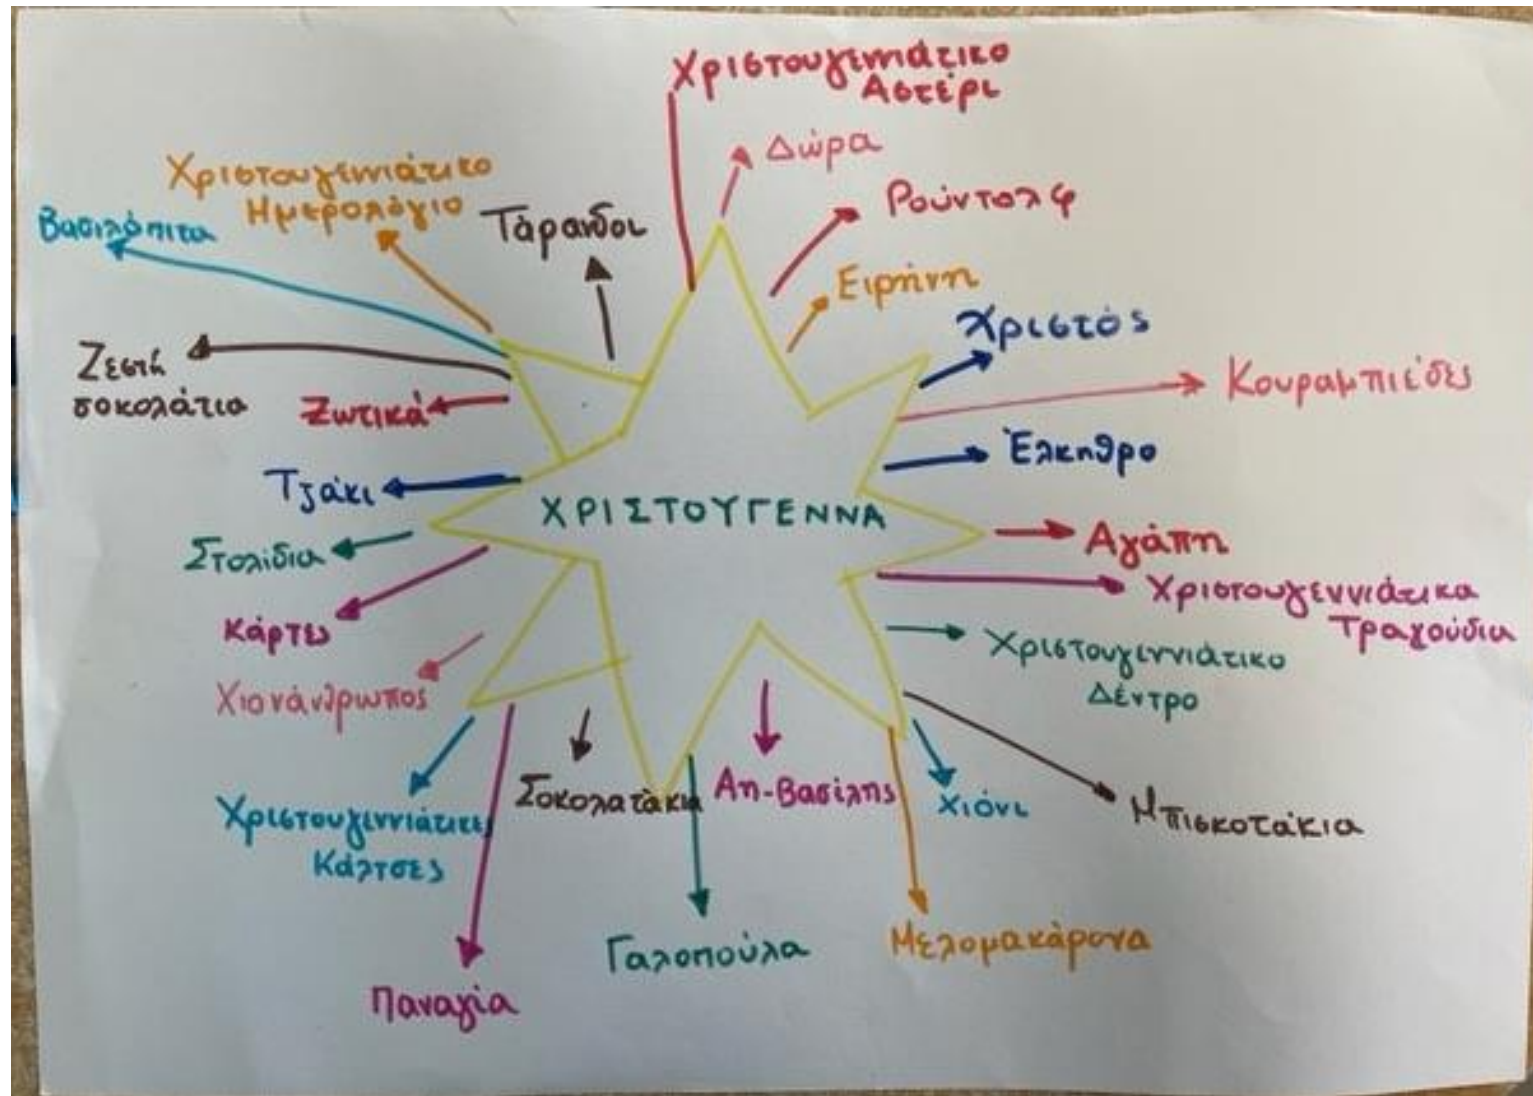 Χριστουγεννιάτικο
Αστέρι
Δώρα
Ρούντολφ
Ειρήνη
Χριστός
Κουραμπιέδες
Έλκηθρο
Αγάπη
Χριστουγεννιάτικα
Τραγούδια
Χριστουγεννιάτικο
Δέντρο
Μπισκοτάκια
Χιόνι
Μελομακάρονα
Αη-Βασίλης
Γαλοπούλα
Σοκολατάκια
Παναγία
Χριστουγεννιάτικες
Κάλτσες
Χιονάνθρωπος
Κάρτες
Στολίδια
Τζάκι
Ζωτικά
Ζεστή
σοκολάτα
Βασιλόπιτα
Χριστουγεννιάτικο
Ημερολόγιο
Τάρανδοι
ΧΡΙΣΤΟΥΓΕΝΝΑ